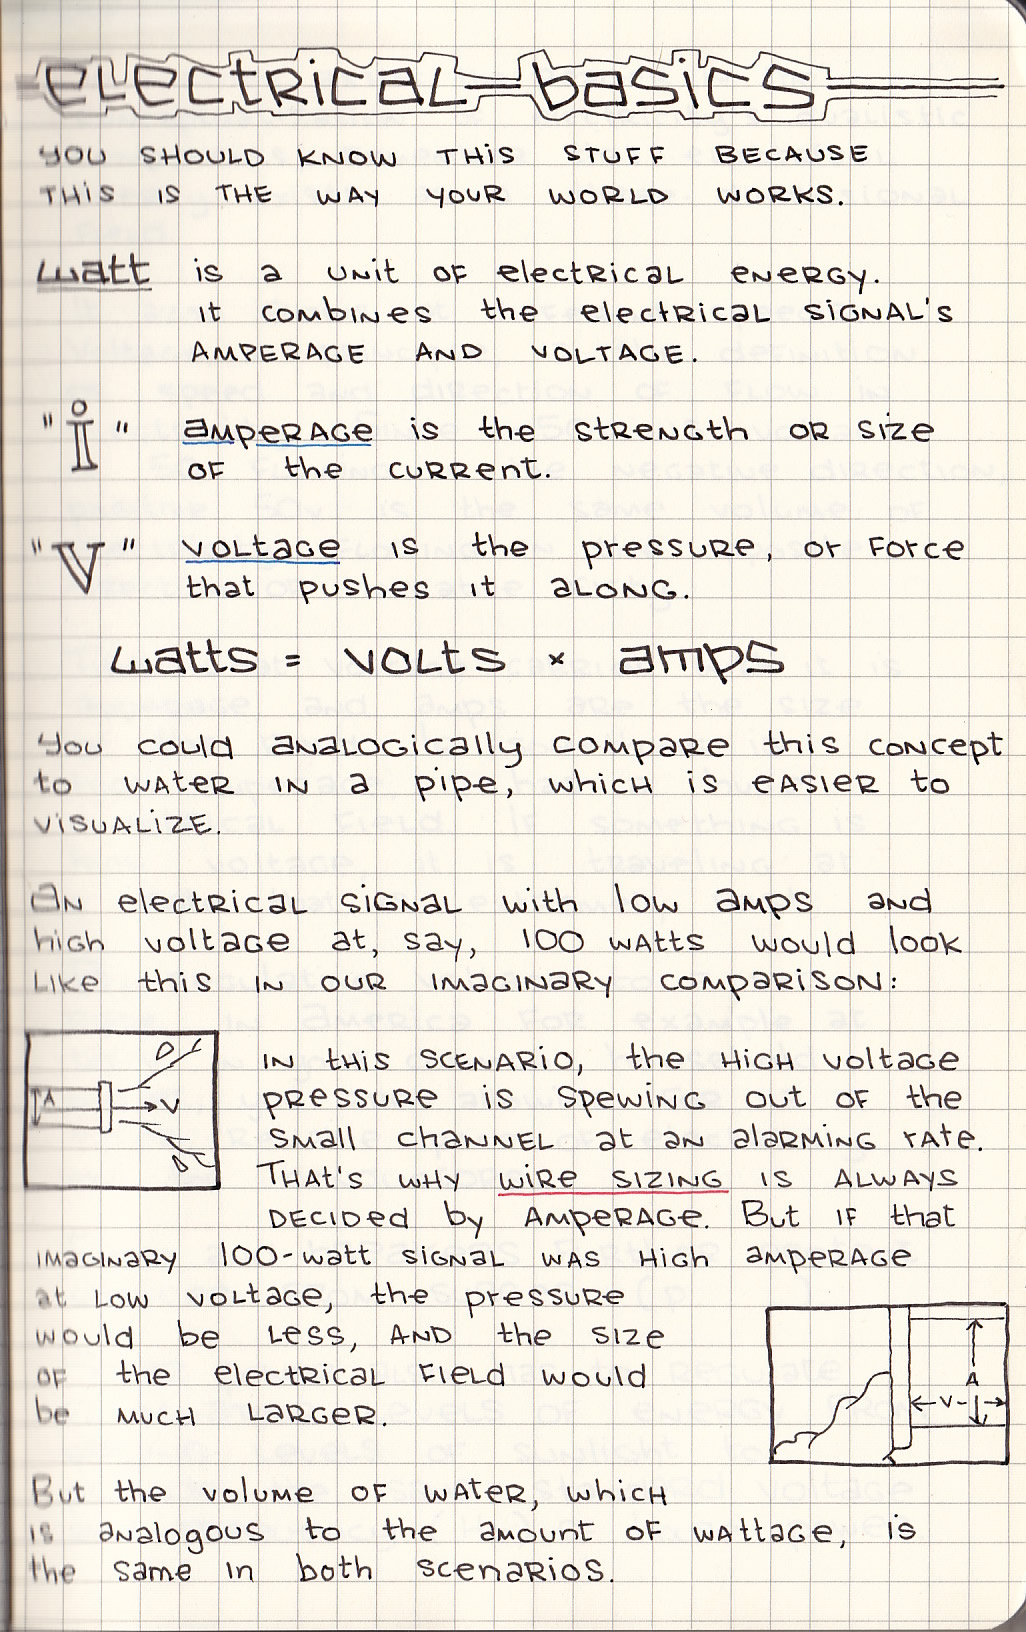 electrical basics
YOU SHOULD KNOW THIS STUFF BECAUSE
THIS IS THE WAY YOUR WORLD WORKS.
watt is a unit of electrical energy.
it combines the electrical signal's
AMPERAGE AND VOLTAGE.
"I" amperage is the strength or size
of the current.
"V" voltage is the pressure, or force
that pushes it along.
watts = volts × amps
You could analogically compare this concept
to water in a pipe, which is easier to
visualize.
An electrical signal with low amps and
high voltage at, say, 100 watts would look
like this in our imaginary comparison:
A
V
In this scenario, the high voltage
pressure is spewing out of the
small channel at an alarming rate.
That's why wire sizing is always
decided by amperage. But if that
imaginary 100-watt signal was high amperage
at low voltage, the pressure
would be less, and the size
of the electrical field would
be much larger.
A
V
But the volume of water, which
is analogous to the amount of wattage, is
the same in both scenarios.